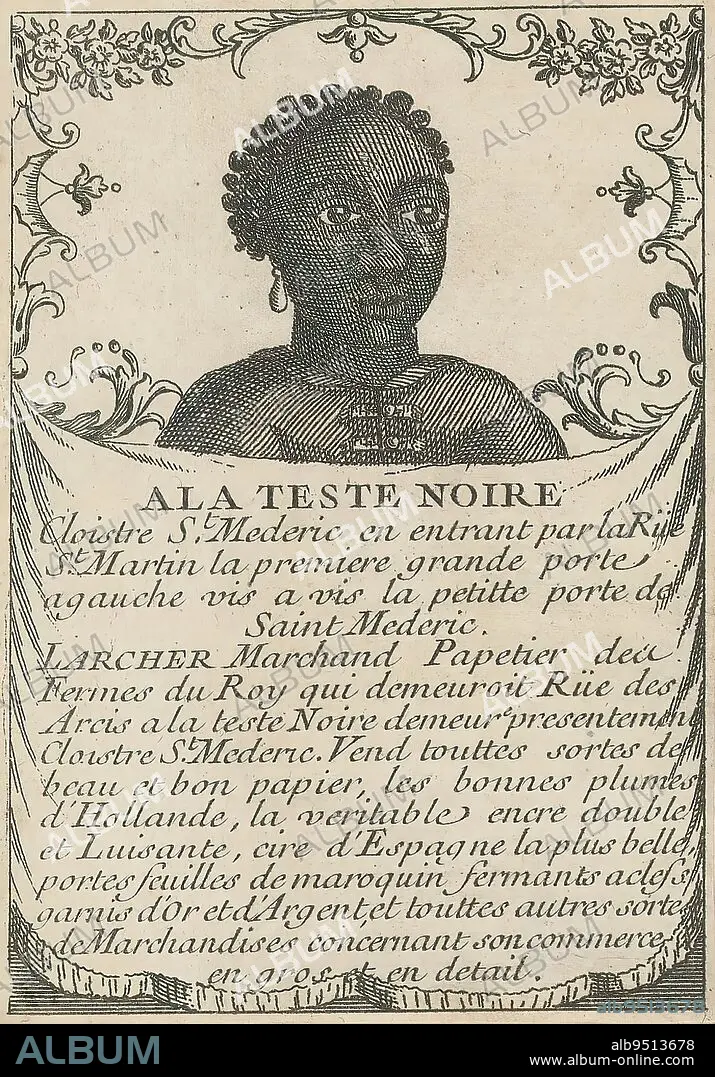 A LA TESTE NOIRE
Cloistre S.t Mederic en entrant par la Rüe
S.t Martin la premiere grande porte
agauche vis a vis la petitte porte de
Saint Mederic.
LARCHER Marchand Papetier des
Fermes du Roy qui demeuroit Rüe des
Arcis a la teste Noire demeur.e presentement
Cloistre S.t Mederic. Vend touttes sortes de
beau et bon papier, les bonnes plumes
d'Hollande, la veritable encre double
et Luisante, cire d'Espagne la plus belle,
portes feuilles de maroquin fermants a clefs
garnis d'Or et d'Argent, et touttes autres sorte
de Marchandises concernant son commerce
en gros et en detail.
ALBUM
ab9513678
ALBUM
alb9513678
www.album-online.com